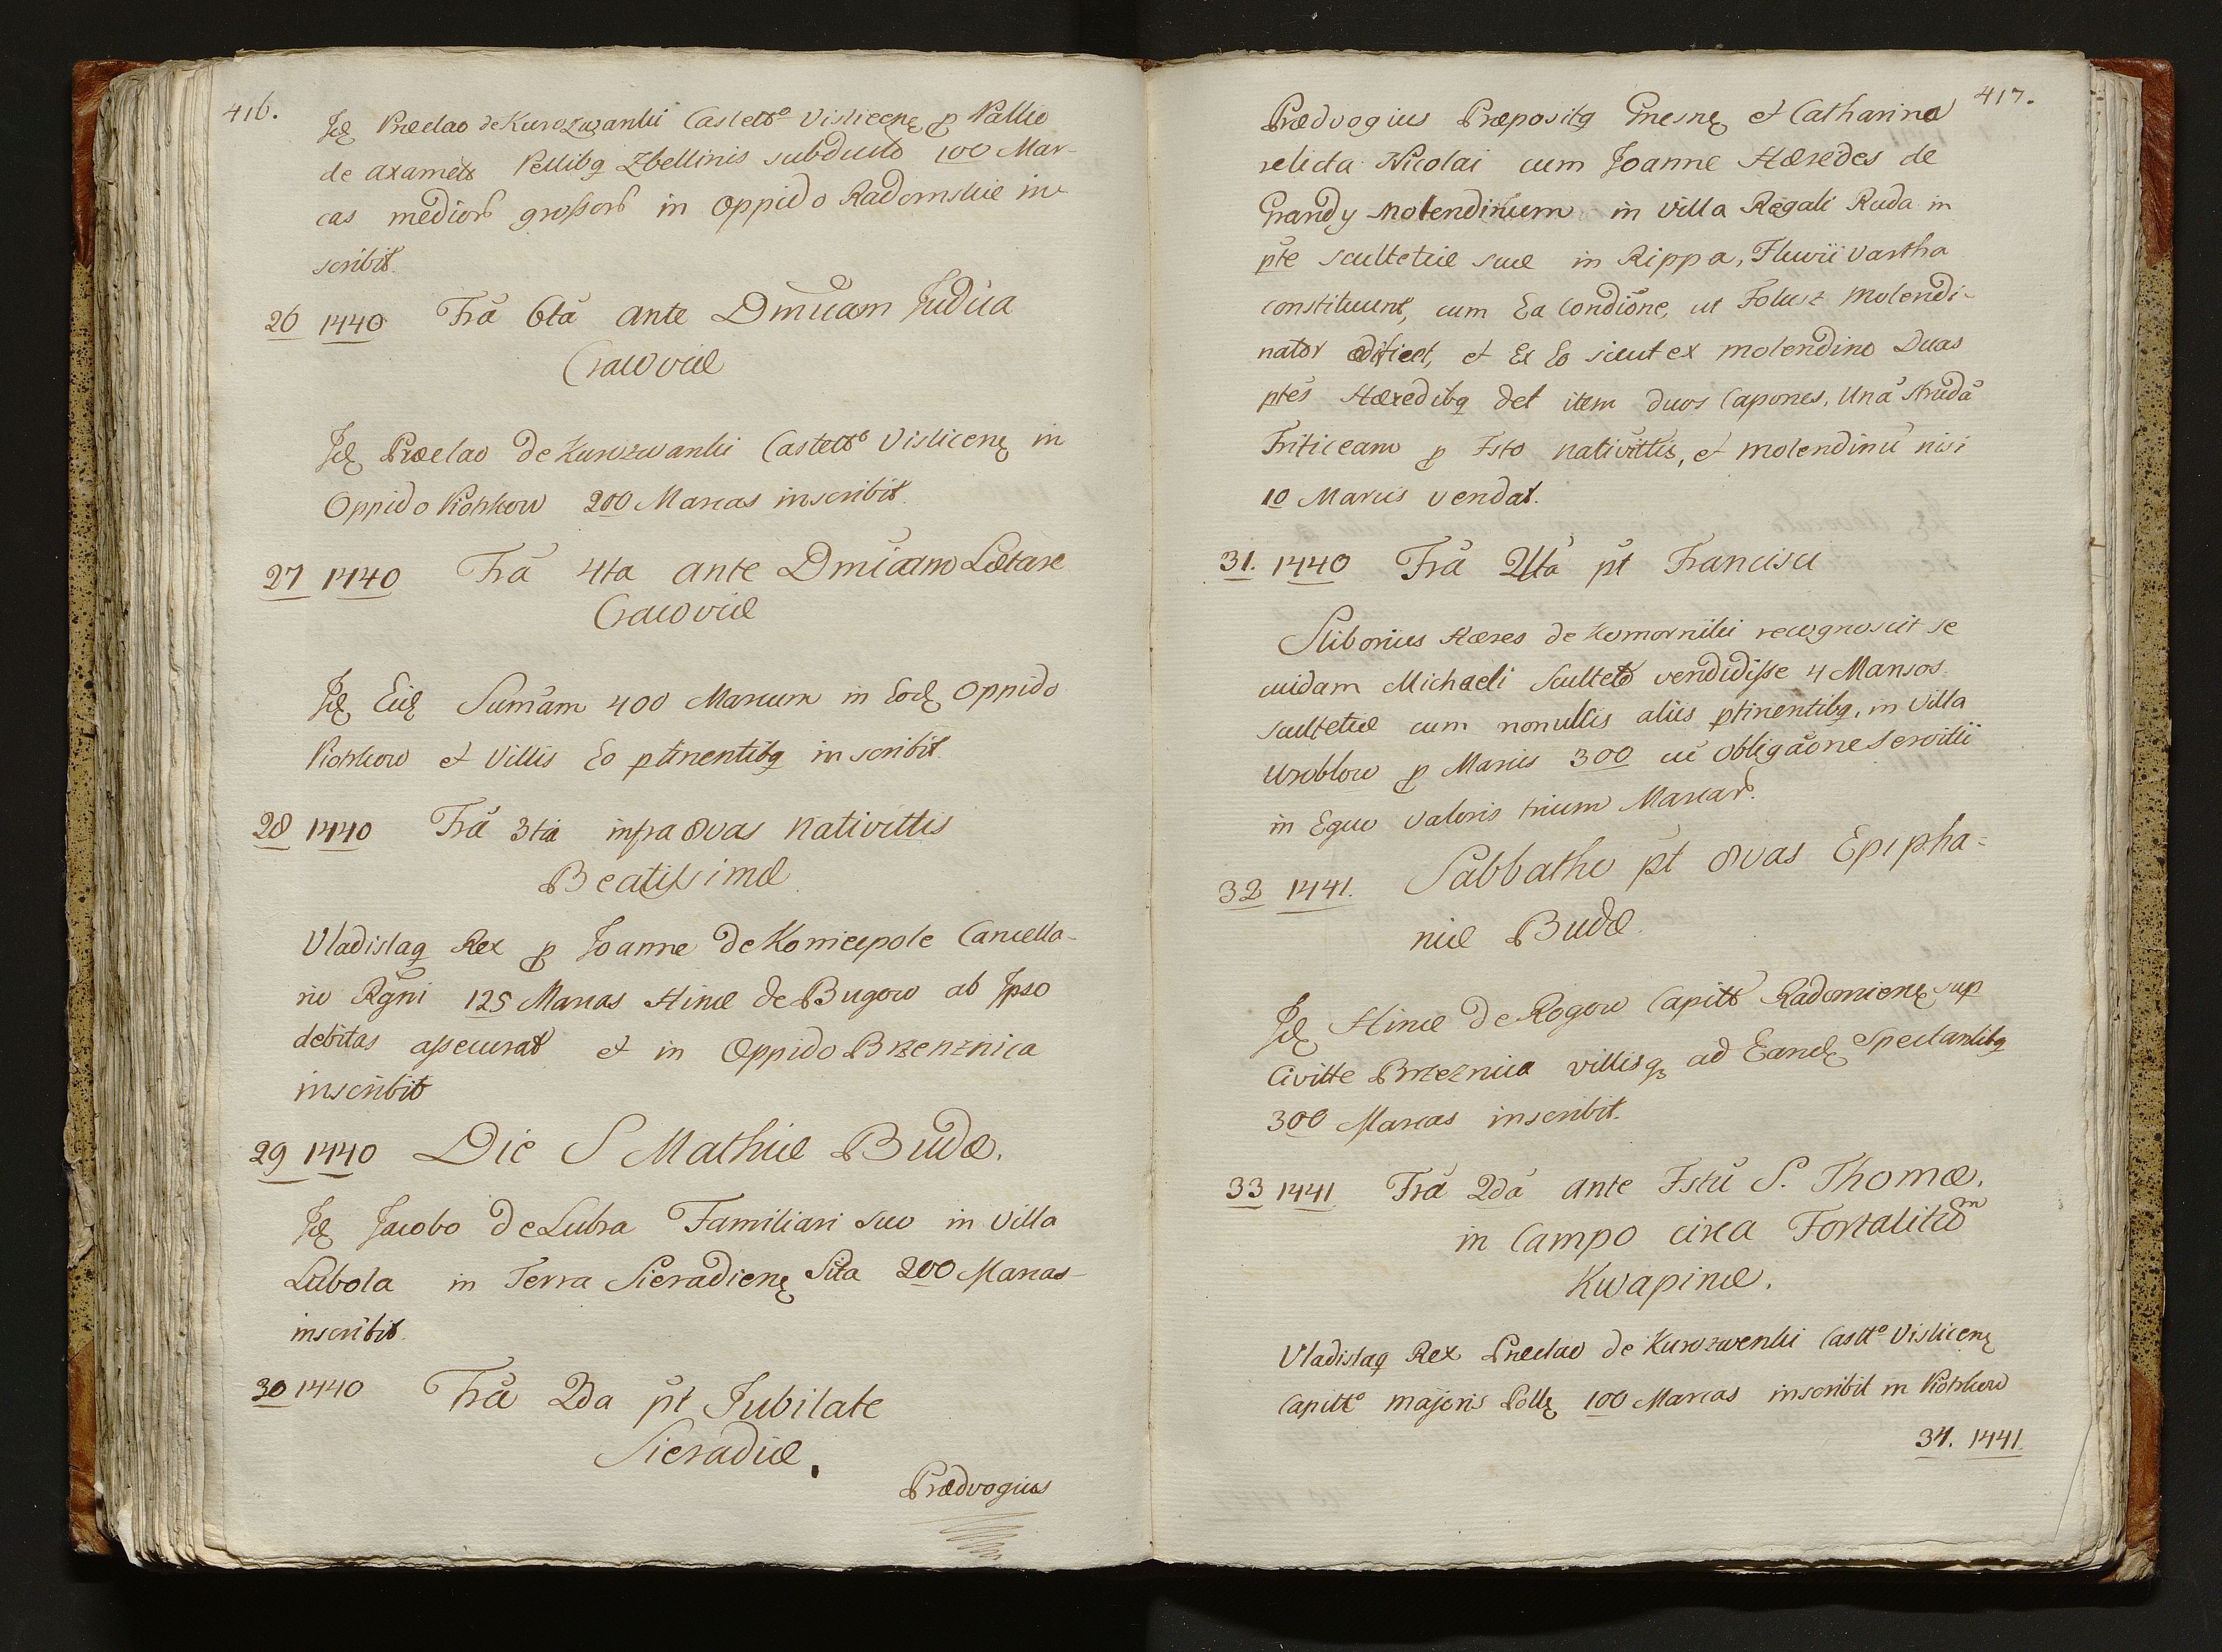 416.
Jdę Præclao de Kurozwanki Castello Vislicenę p Pallio
de axameto Pellibq Zbellinis subducto 100 Mar-
cas medior̃ grossor̃ in Oppido Radomskie in-
scribit.
26 1440 Fr̃a 6tã ante Dm̃icam Judica
Cracoviæ
Jdę Præclao de Kurozwanki Castello Visliceną in
Oppido Piotrkow 200 Marcas inscribit.
27 1440 Fr̃a 4ta ante Dm̃icam Lætare
Cracoviæ
Jdę Eidę Sum̃am 400 Marcarum in Eodę Oppido
Piotrkow et Villis Eo ptinentibq inscribit.
28 1440 Fr̃a 3tiã infra 8vas Nativittis
Beatissimæ
Vladislaq Rex p Joanne de Koniecpole Cancella-
rio Rgñi 125 Marcas Hincæ de Bugow ab Jpso
debitas assecurat et in Oppido Brzenznica
inscribit
29 1440 Die S Mathiæ Budæ.
Jdę Jacobo de Lubra Familiari suo in Villa
Lubola in Terra Sieradienę Sita 200 Marcas
inscribit.
30 1440 Fr̃a 2da p̃t Jubilate
Sieradiæ.
Prædvogius
417.
Prædvogius Præpositq Gnesnę et Catharina
relicta Nicolai cum Joanne Hæredes de
Grandy Molendinum in Villa Regali Ruda in
p̃te scultetiæ suæ in Rippa, Fluvii Vartha
constituunt, cum Ea Condiõne, ut Folusz Molendi-
nator ædificet, et Ex Eo sicut ex molendino Duas
p̃tes Hæredibq det item duos Capones, Unã strudã
Triticeam p Fsto Nativittis, et molendinũ nisi
10 Marcis vendat.
31. 1440 Fr̃a 4tã p̃t Francisci
Stiborius Hæres de Komorniki recognoscit se
cuidam Michaeli Sculteto vendidisse 4 Mansos
scultetiæ cum nonullis aliis ptinentibq, in Villa
Wroblow p Marcis 300 cũ Obligaõne Servitii
in Equo valoris trium Marcar̃.
32 1441. Sabbatho p̃t 8vas Epipha=
niæ Budæ.
Jdę Hincæ de Rogow Capitt Radomienę sup
Civitte Brzeznica villisq ad Eandę Spectantibq
300 Marcas inscribit.
33 1441 Fr̃a 2dã ante Fstũ S. Thomæ.
in Campo circa Fortalitium
Kwapinæ.
Vladislaq Rex Præclao de Kurozwenki Castto Visliceną
Capitto majoris Pollę 100 Marcas inscribit in Piotrkow
34. 1441.